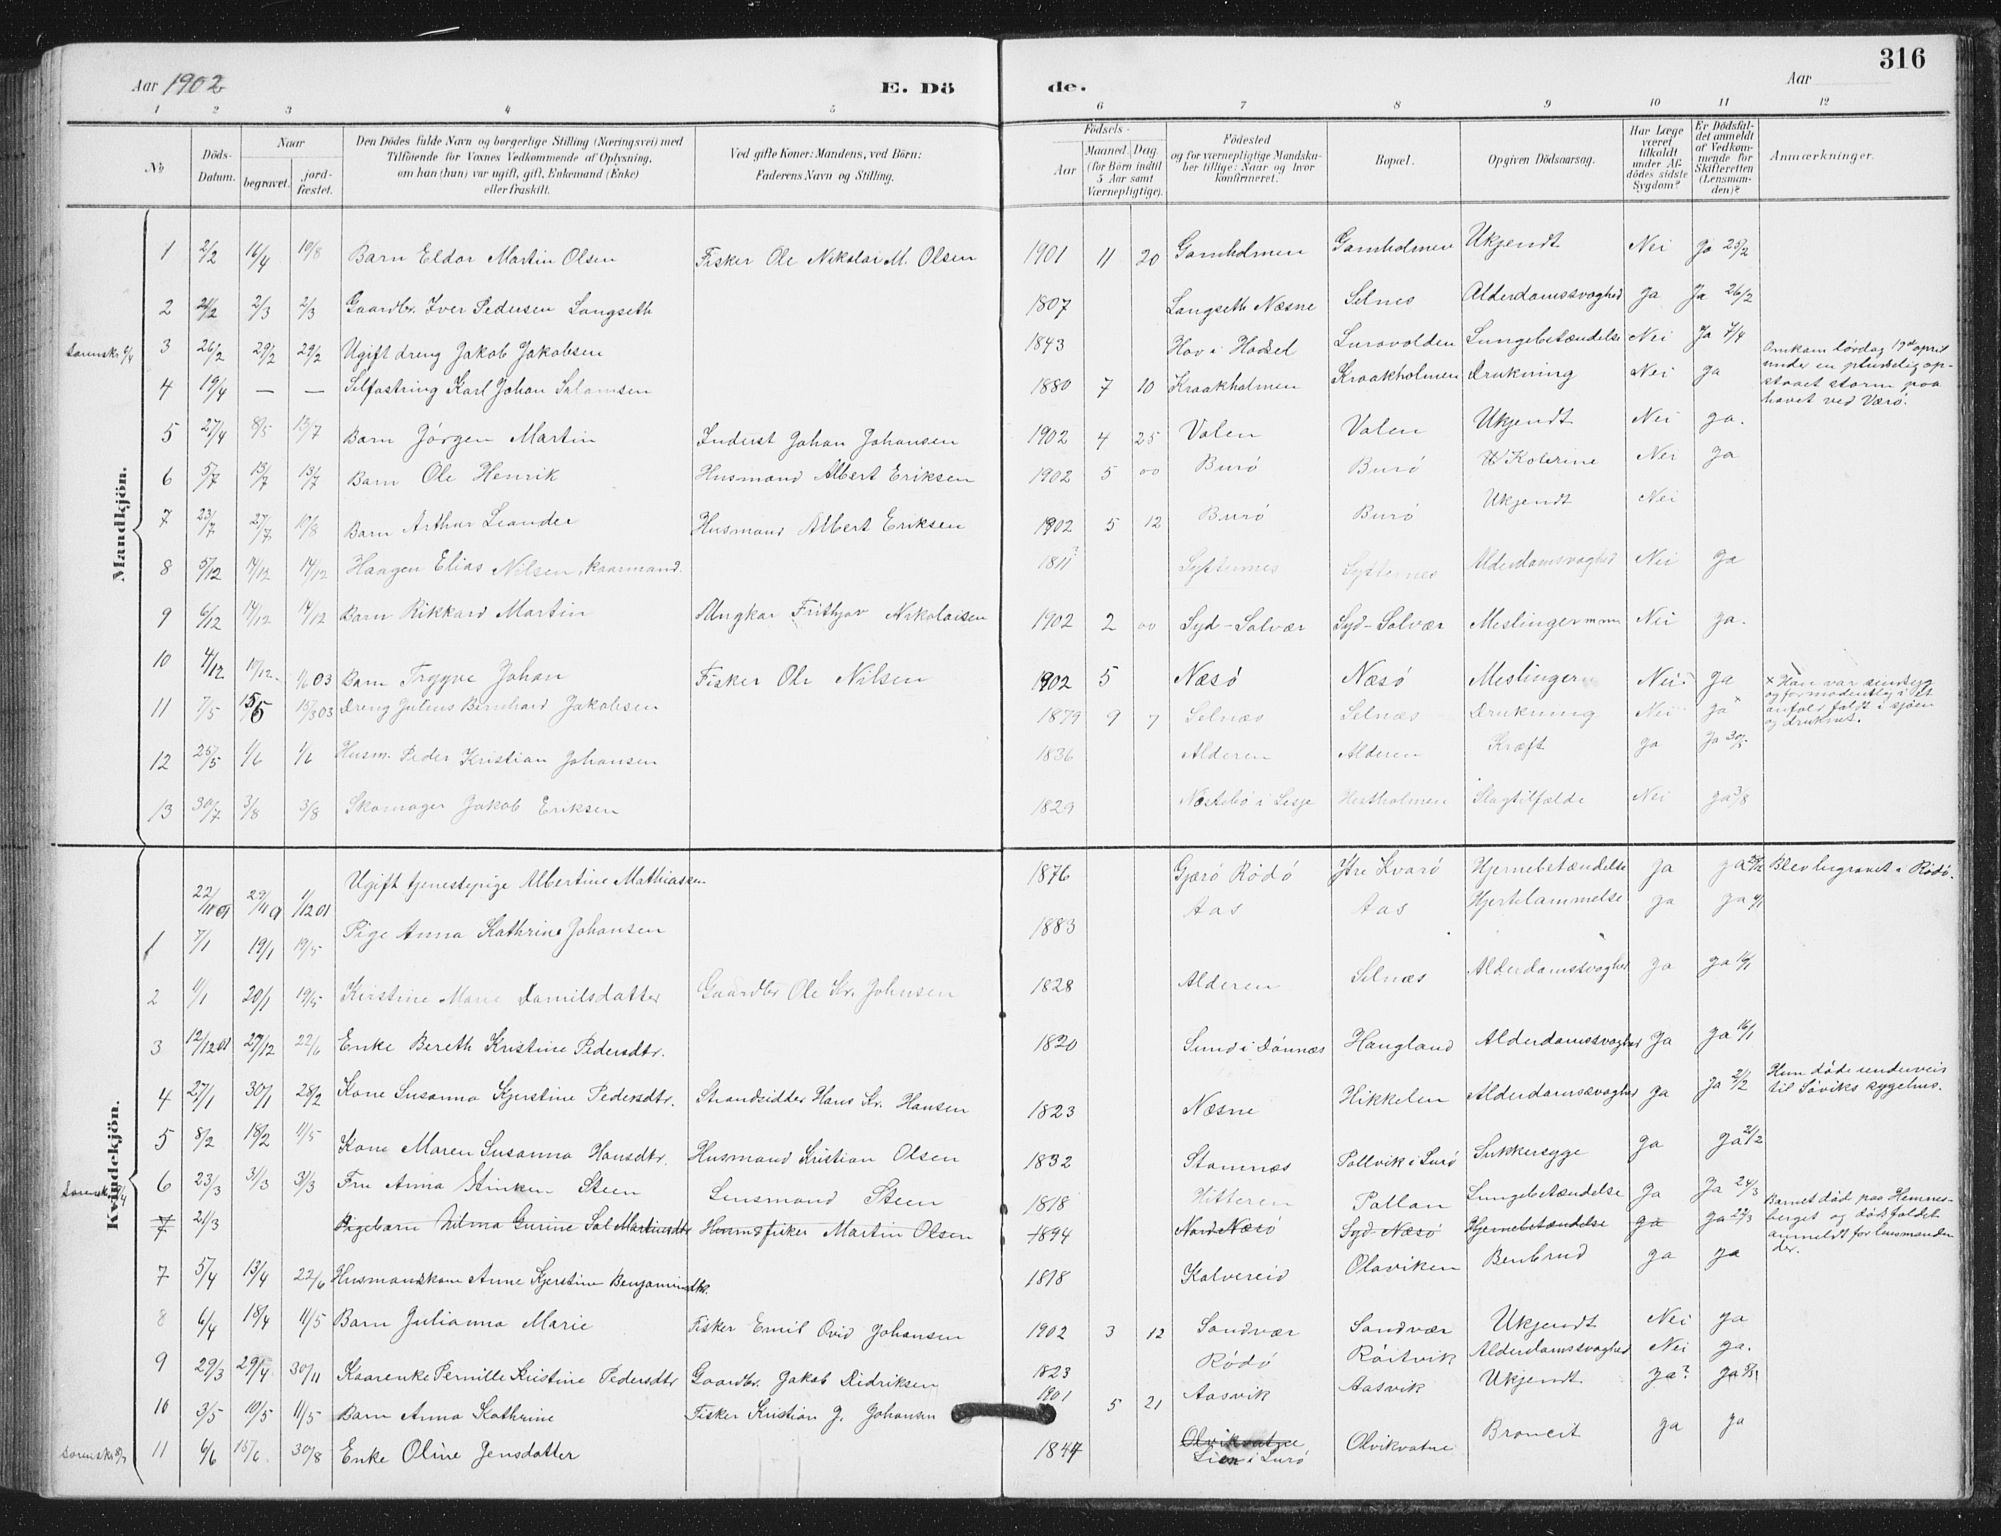 316
Aar 1902 E. Dö de. Aar
1 2 3 4 5 6 7 8 9 10 11 12
No
Döds-Datum.
Naar begravet. jord-fæstet.
Den Dödes fulde Navn og borgerlige Stilling (Næringsvei) med Tilföiende for Voxnes Vedkommende af Oplysning, om han (hun) var ugift, gift, Enkemand (Enke) eller fraskilt.
Ved gifte Koner: Mandens, ved Börn: Faderens Navn og Stilling.
Födsels- Aar Maaned. Dag. (for Börn indtil 5 Aar samt Værnepligtige).
Födested og for værnepligtige Mandska-ber tillige: Naar og hvor konfirmeret.
Bopæl.
Opgiven Dödsaarsag.
Har Læge været tilkaldt under Af-dödes sidste Sygdom?
Er Dödsfal-det anmeldt af Vedkom-mende for Skifteretten (Lensman-den)?
Anmærkninger.
Mandkjön.
1 2/2 16/4 10/8 Barn Eldor Martin Olsen Fisker Ole Nikolai M. Olsen 1901 11 20 Gamholmen Gamholmen Ukjendt Nei Ja 25/2
2 24/2 2/3 2/3 Gaardbr. Iver Pedersen Langseth 1807 Langseth Næsne Selnes Alderdomssvaghed ja Ja 26/2
3 26/2 29/2 29/2 Ugift dreng Jakob Jakobsen 1843 Hov i Hadsel Lurovolden Lungebetændelse Nei Ja 7/4
4 19/4 — — Selfostring Karl Johan Salamsen 1880 7 10 Kraakholmen Kraakholmen Drukning Nei ja Omkom lørdag 19de april under en pludselig op-staaet storm paa havet ved Værø.
5 27/4 8/5 13/7 Barn Jørgen Martin Inderst Johan Johansen 1902 4 25 Valen Valen Ukjendt Nei ja.
6 5/7 13/7 13/7 Barn Ole Henrik Husmand Albert Eriksen 1902 5 00 Burø Burø Kolerine Nei ja
7 23/7 27/7 10/8 Barn Arthur Leander Husmand Albert Eriksen 1902 5 12 Burø Burø Ukjendt Nei
8 5/12 14/12 14/12 Haagen Elias Nilsen, kaarmand. 1811? Systernes Systernes Alderdomsvaghed Nei ja
9 6/12 14/12 14/12 Barn Rikkard Martin Ungkar Frithjov Nikolaisen 1902 2 00 Syd-Solvær Syd-Solvær Meslinger Nei ja.
10 4/12 1/6 03 Barn Trygve Johan Fisker Ole Nilsen 1902 5 Næsø Næsø Meslinger Nei ja
11 7/5 15/5 15/3 03 Dreng Julius Bernhard Jakobsen 1879 9 7 Selnæs Selnæs Drukning Nei ja x x Han var sindssyg og formodentlig i et anfald faldt i sjøen og druknet.
12 25/5 1/6 1/6 Husm. Peder Kristian Johansen 1836 Alderen Alderen Kræft ja Ja 30/5
13 30/7 3/8 3/8 Skomager Jakob Eriksen 1829 Næstebø i Lesje Hestholmen Slagtilfælde Nei ja 3/8
Kvindekjön.
22/11 01 29/11 01 1/12 01 Ugift tjenestepige Albertine Mathiassen 1876 Gjærø Rødø Ytre Kvarø Hjernebetændelse ja ja Blev begravet i Rødø.
1 7/1 19/1 19/5 Pige Anna Kathrine Johansen 1883 Aas Aas Hjertelammelse ja ja
2 9/1 20/1 19/5 Kirstine Marie Danielsdatter Gaardbr Ole Kr. Johnsen 1828 Alderen Selnæs Alderdomssvaghed ja ja 10/1
3 12/12 01 27/12 22/6 Enke Bereth Kristine Pedersdtr. 1820 Sund i Dønnæs Haugland Alderdomssvaghed Ja ja 16/1
4 27/1 30/1 28/2 Kone Susanna Kjerstine Pedersdtr. Strandsidder Hans Kr. Hansen 1823 Næsne Hikkelen Alderdomssvaghed ja Ja 2/2 Hun døde underveis til Søviks sygehus.
5 8/2 18/2 11/5 Kone Maren Susanna Hansdtr. Husmand Kristian Olsen 1832 Stamnæs Pollvik i Lurø Sukkersyge ja ja
6 23/3 31/3 31/3 Fru Anna Stinken Steen Lensmand Steen 1818 Hitteren Pollan Lungebetændelse Ja Ja 24/3
7 21/3 Pigebarn Nilma Gurine Sal Martinsdtr Husmdfisker Martin Olsen 1894 Nord-Næsø Syd-Næsø Hjernebetændelse ja ja 22/3 Barnet død paa Hemnes-berget og dødsfaldet anmeldt for lensmanden der.
7 5/4 13/4 22/6 Husmandskone Anne Kjerstine Benjaminsdtr. 1818 Kalvereid Olaviken Benbrud ja ja
8 6/4 18/4 11/5 Barn Julianna Marie Fisker Emil Ovid Johansen 1902 3 12 Sandvær Sandvær Ukjendt Nei ja
9 29/3 29/4 30/11 Kaarenke Pernille Kristine Pedersdtr Gaardbr. Jakob Didriksen 1823 Rødø Røitvik Alderdomssvaghed Nei ja.
10 3/5 10/5 11/5 Barn Anna Kathrine Fisker Kristian J. Johansen 1901 5 21 Aasvik Aasvik Ukjendt ja? ja
11 6/6 15/6 30/8 Enke Oline Jensdatter 1844 Olvikvatne Lien i Lurø Olvikvatne Broncit ja ja